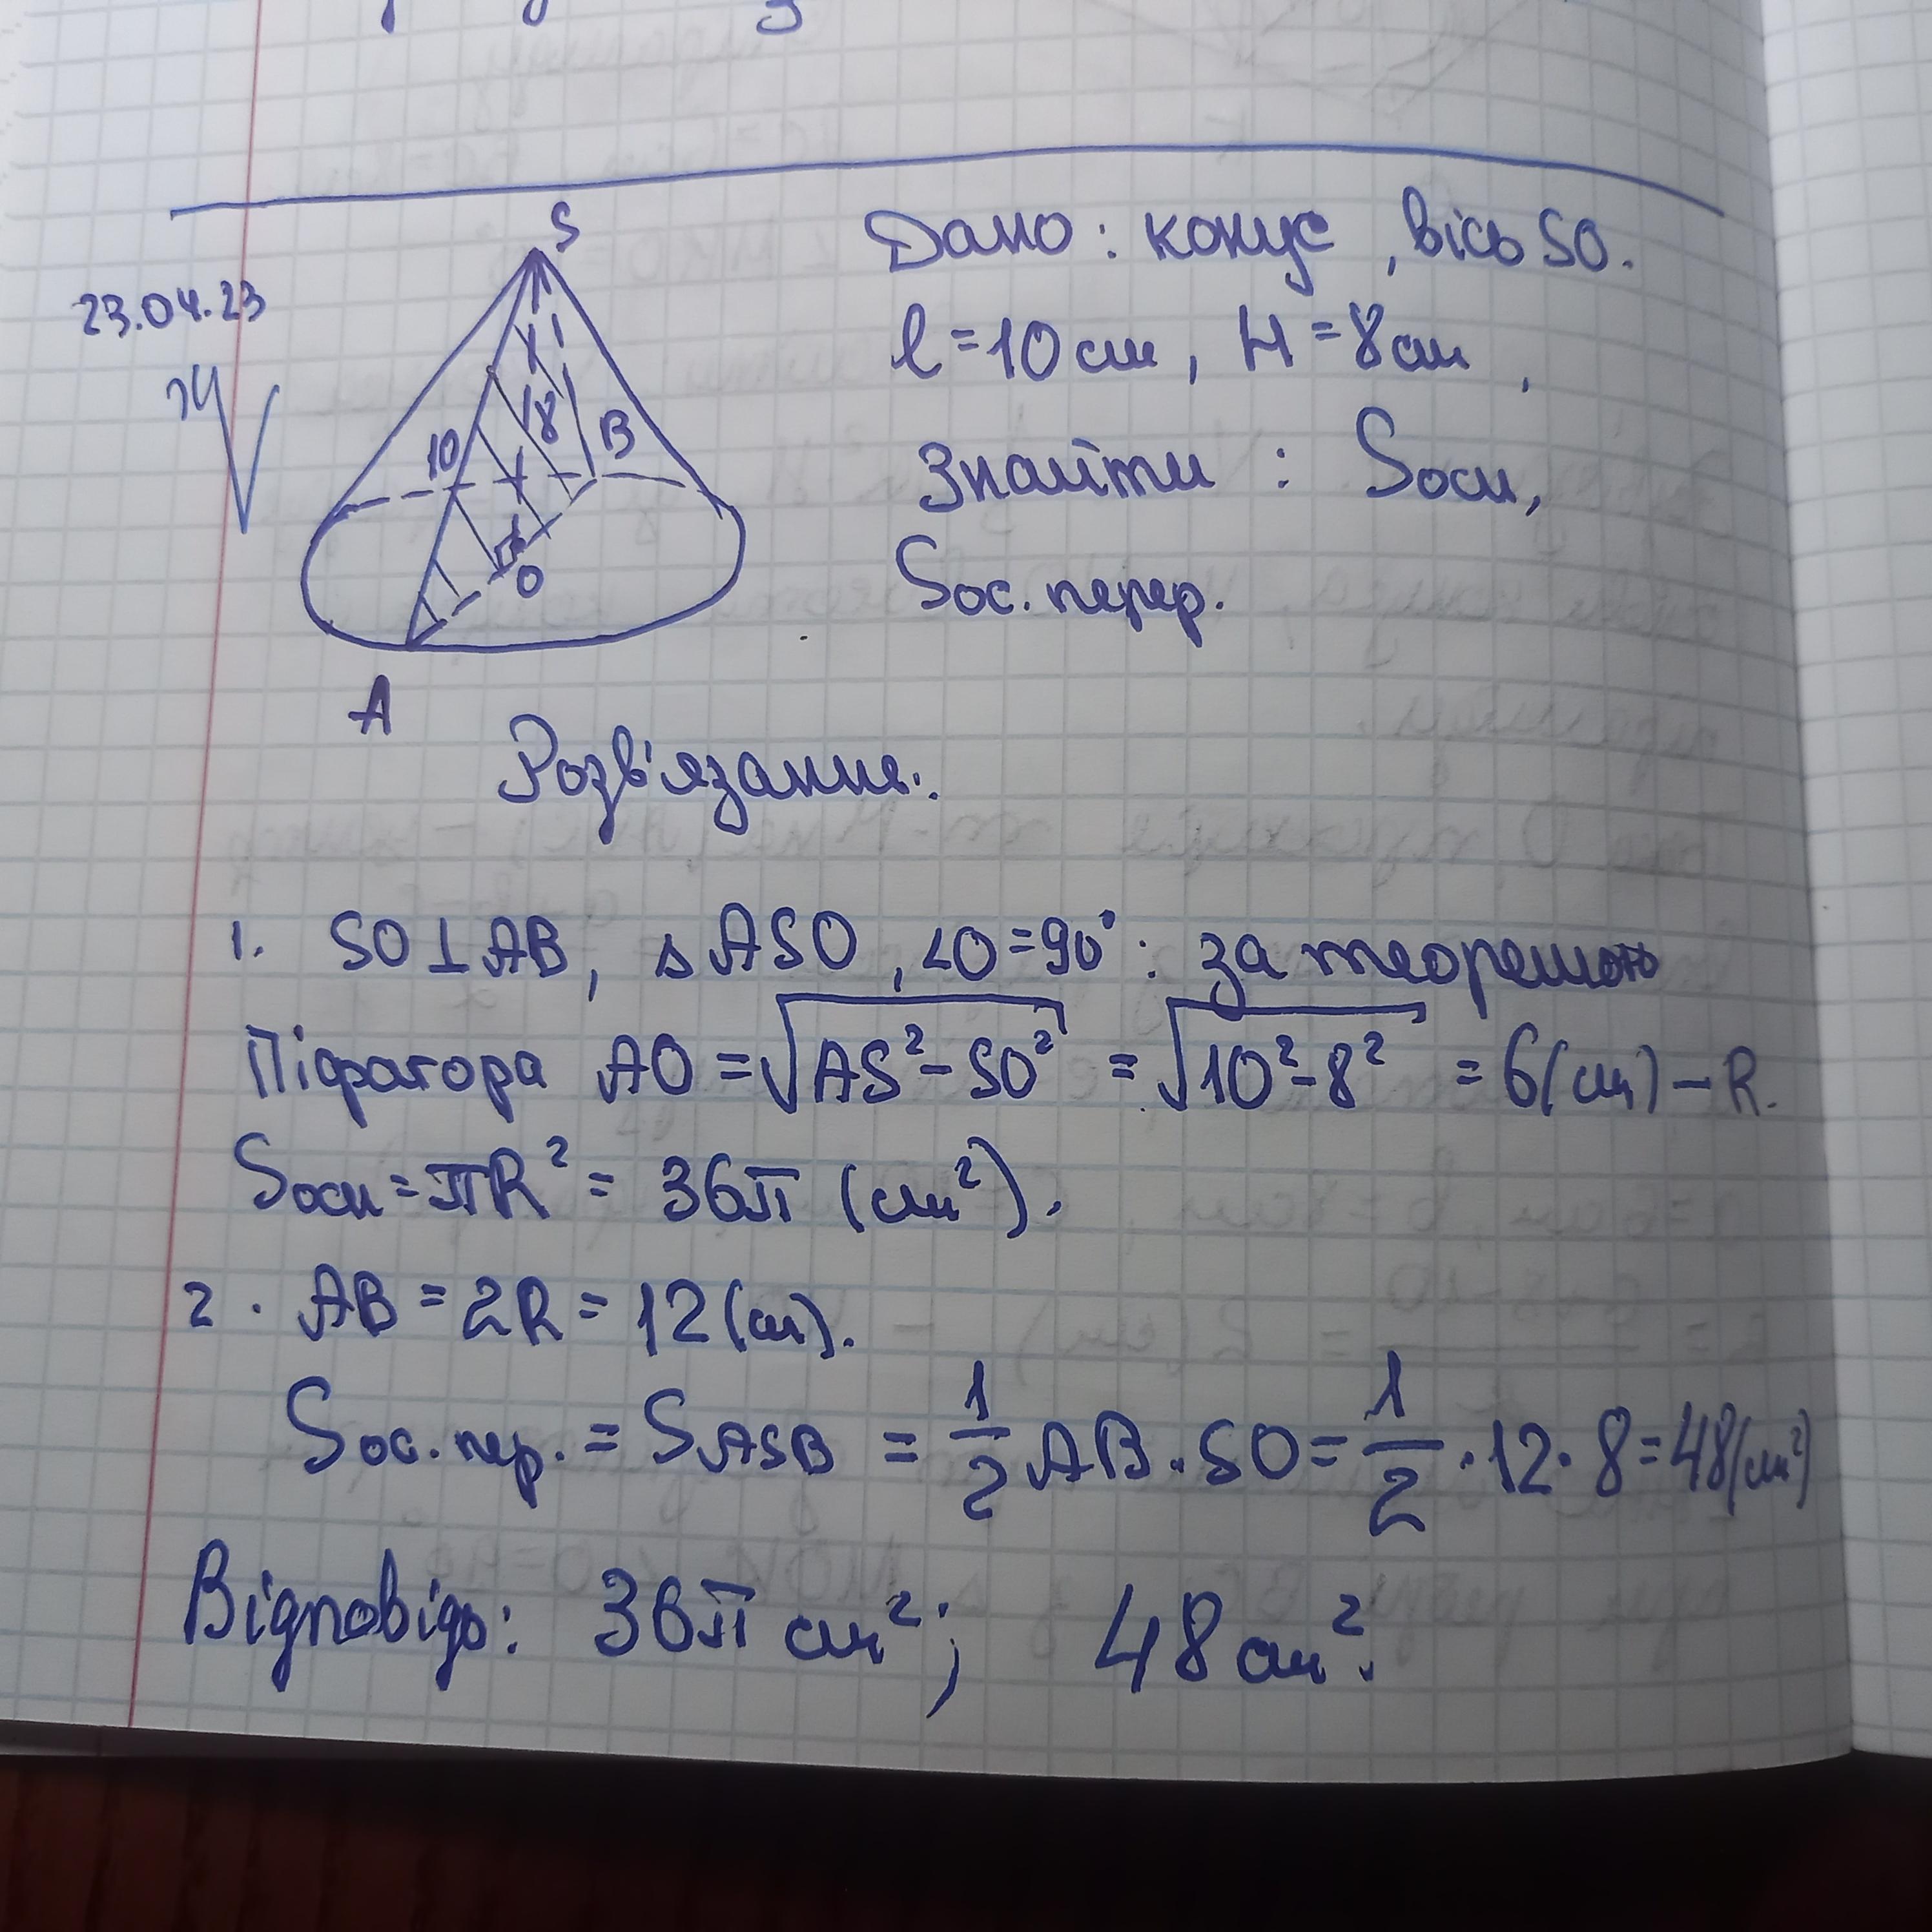 S
Дано: конус, вісь SO.
23.04.23
l = 10 см, H = 8 см,
10 8 B
Знайти: Sосн,
O
Sос. перер.
A
Розв'язання.
1. SO⊥AB, ΔASO, ∠O=90°: за теоремою
Піфагора AO = √(AS² - SO²) = √(10² - 8²) = 6(см) – R.
Sосн = πR² = 36π (см²).
2. AB = 2R = 12(см).
Sос. пер. = SASB = 1/2 AB · SO = 1/2 · 12 · 8 = 48(см²)
Відповідь: 36π см²; 48 см².